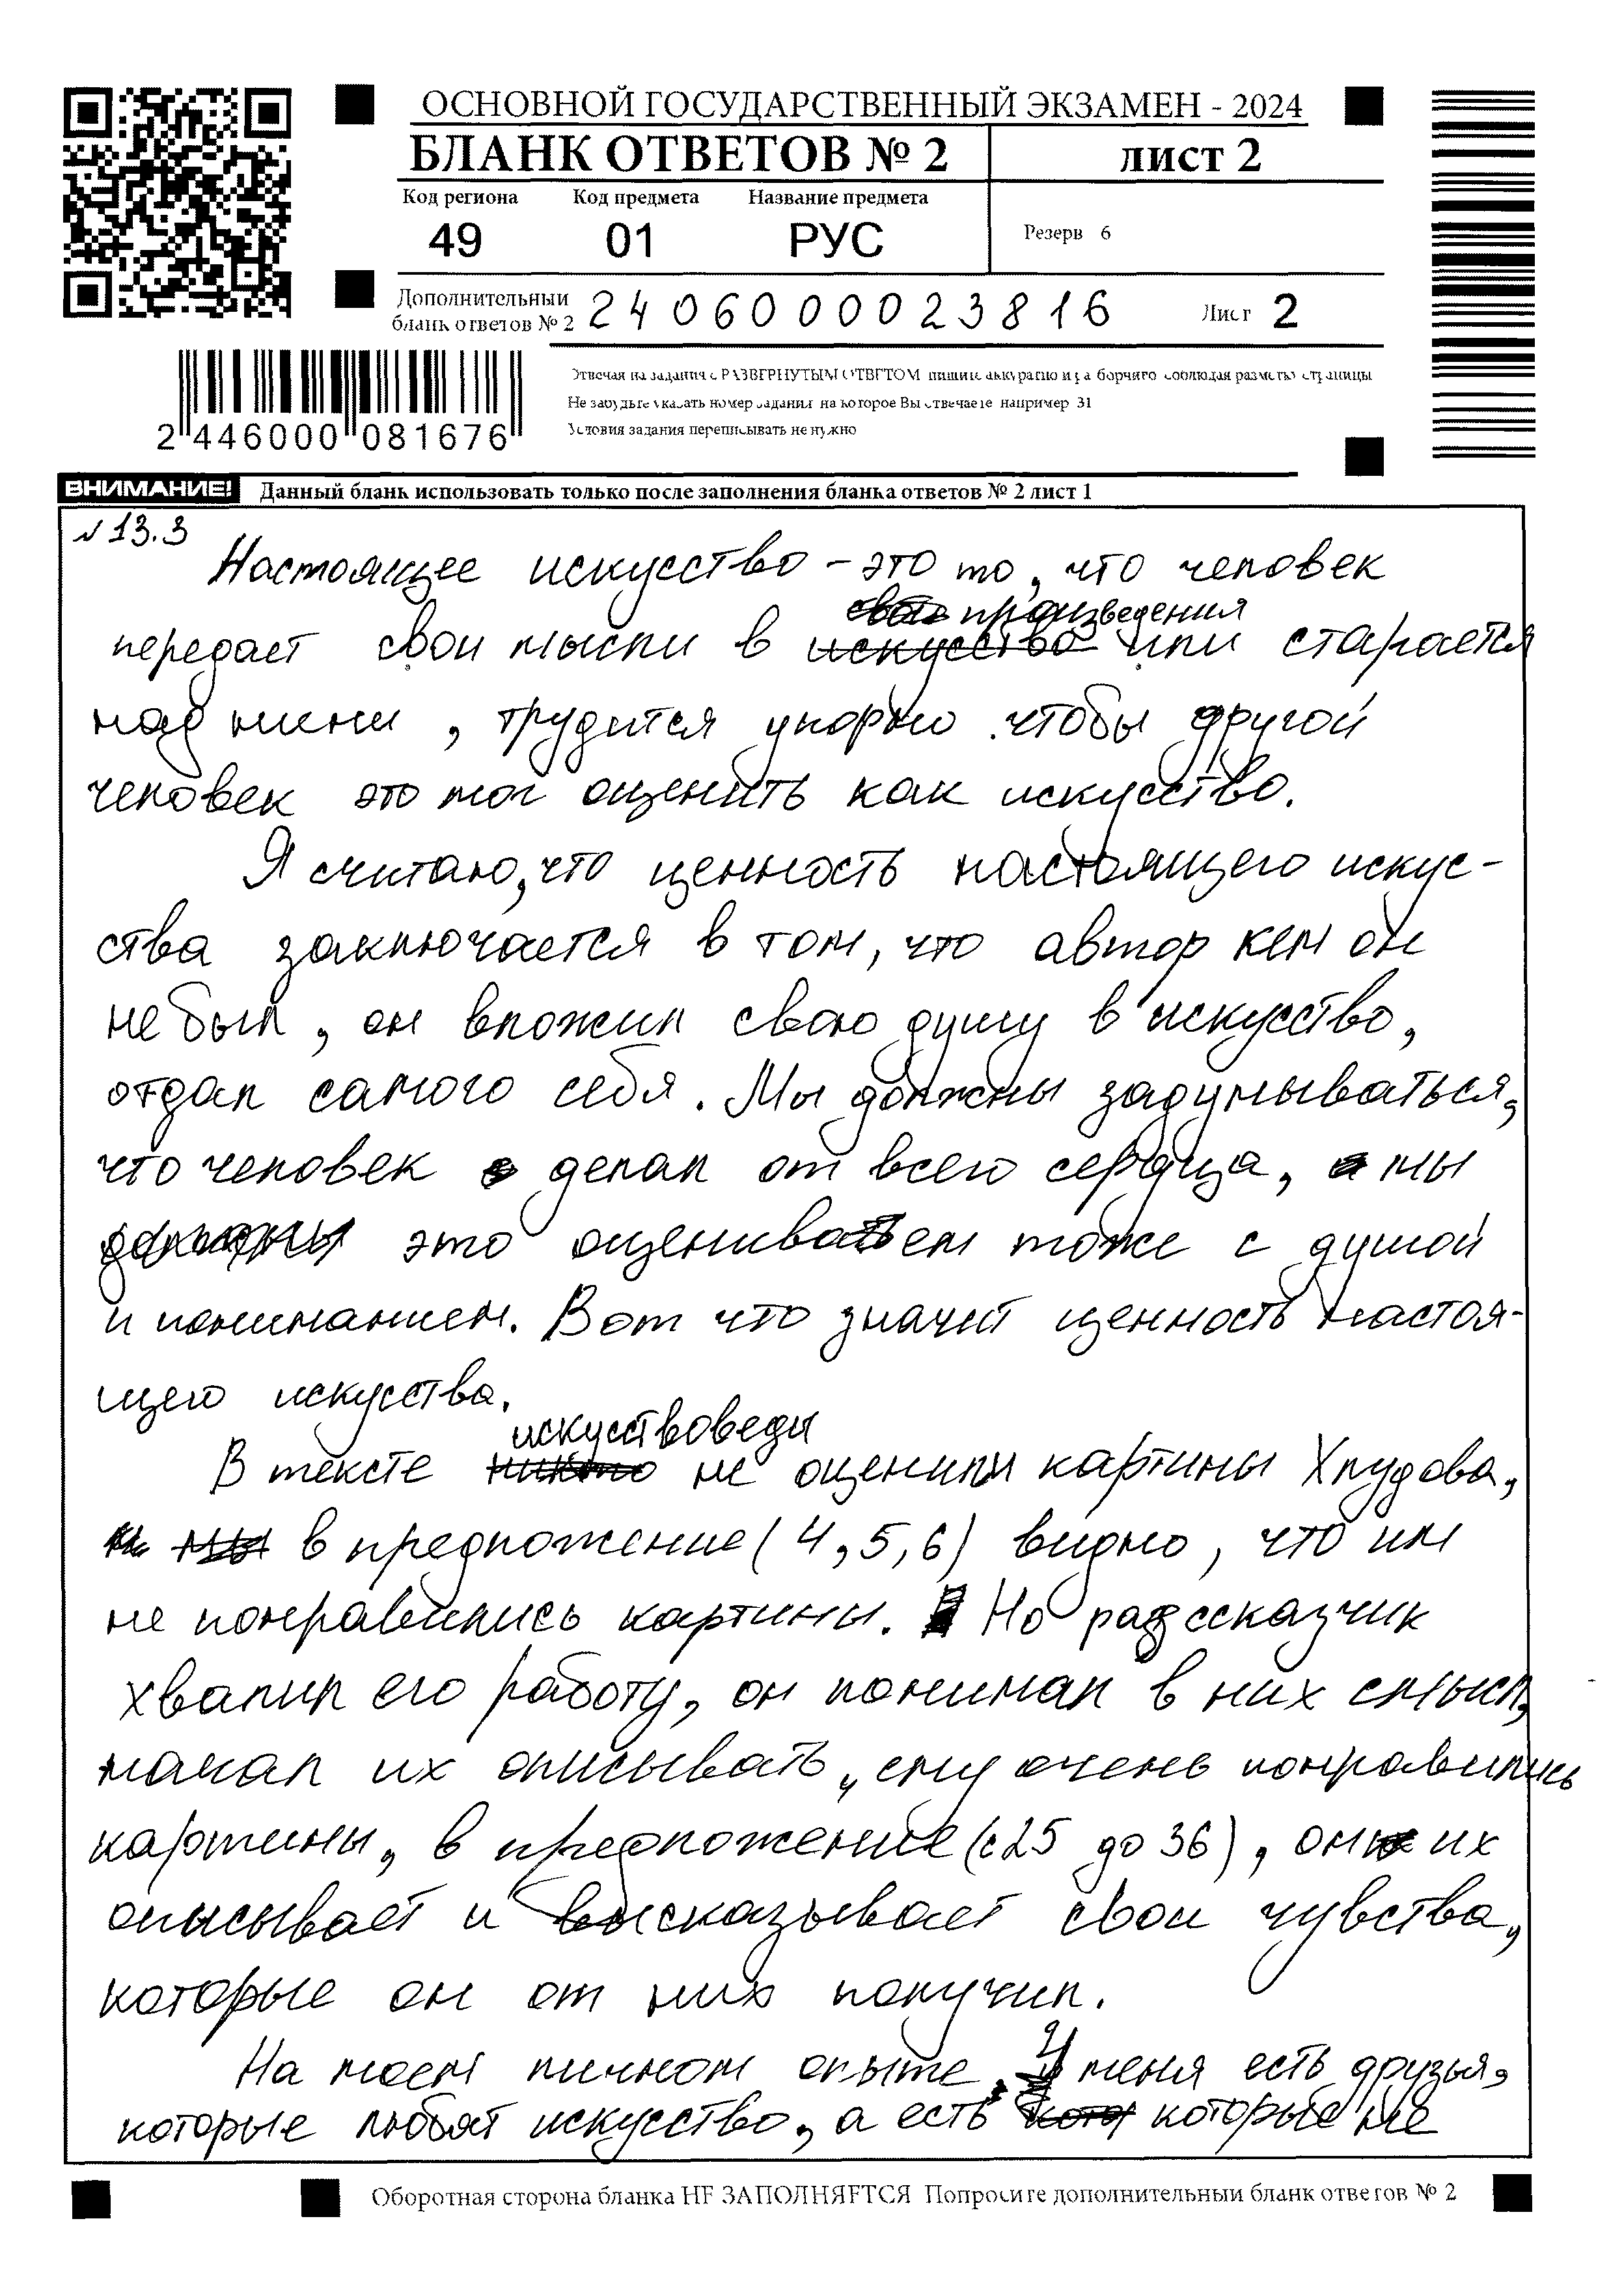 ОСНОВНОЙ ГОСУДАРСТВЕННЫЙ ЭКЗАМЕН - 2024
БЛАНК ОТВЕТОВ № 2
ЛИСТ 2
Код региона Код предмета Название предмета
49 01 РУС
Резерв 6
Дополнительный
бланк ответов № 2 2406000023816
Лист 2
Отвечая на задания с РАЗВЕРНУТЫМ ОТВЕТОМ пишите аккуратно и разборчиво соблюдая разметку страницы
Не забудьте указать номер задания на которое Вы отвечаете например 31
Условия задания переписывать не нужно
2 446000 081676
ВНИМАНИЕ! Данный бланк использовать только после заполнения бланка ответов № 2 лист 1
№ 13.3
Настоящее искусство – это то, что человек
передает свои мысли в произведения или старается
над ними, трудится упорно чтобы другой
человек это мог оценить как искусство.
Я считаю, что ценность настоящего искус-
ства заключается в том, что автор кем он
не был, он вложил свою душу в искусство,
отдал самого себя. Мы должны задумываться,
что человек делал от всего сердца, а мы
это оцениваем тоже с душой
и пониманием. Вот что значит ценность настоя-
щего искусства.
В тексте искусствоведы не оценили картины Хлудова,
в предложение (4,5,6) видно, что им
не понравились картины. Но рассказчик
хвалил его работу, он понимал в них смысл,
начал их описывать, ему очень понравились
картины, в предложение (с 25 до 36), он их
описывает и высказывает свои чувства,
которые он от них получил.
На моем личном опыте, у меня есть друзья,
которые любят искусство, а есть которые не
Оборотная сторона бланка НЕ ЗАПОЛНЯЕТСЯ Попросите дополнительный бланк ответов № 2